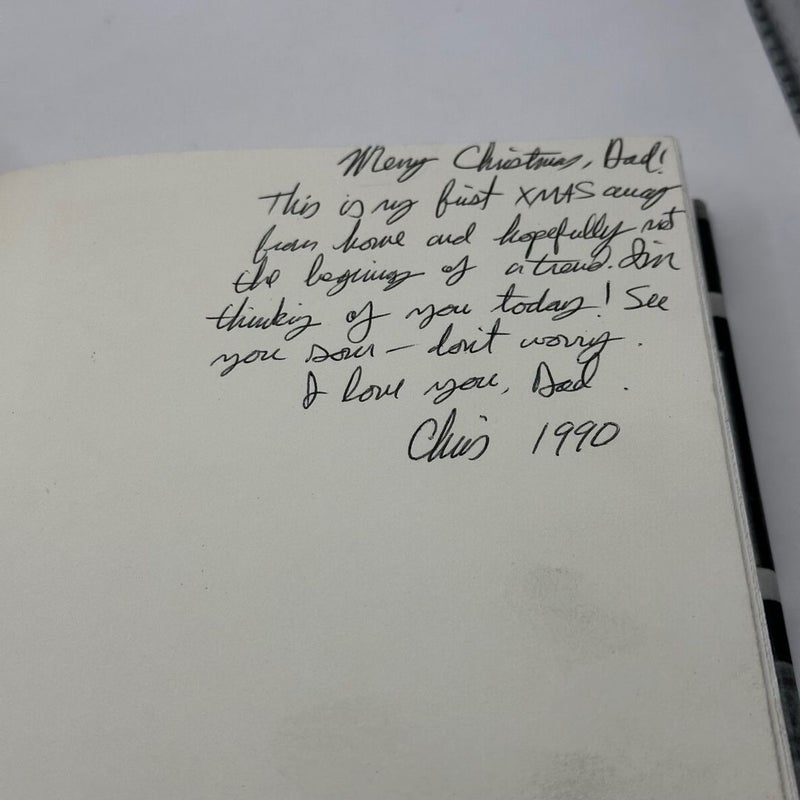 Merry Christmas, Dad!
This is my first XMAS away
from home and hopefully not
the begining of a trend. I'm
thinking of you today! See
you soon – don't worry.
I love you, Dad.
Chris 1990